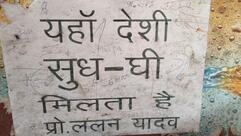 यहाँ देशी
सुध-घी
मिलता है
प्रो.ललन यादव